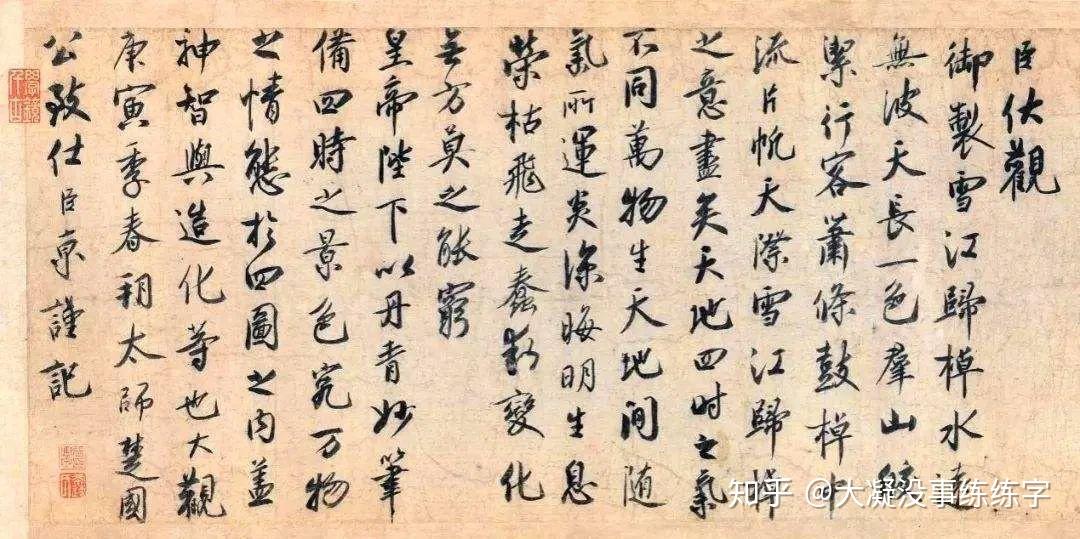 臣伏觀
御製雪江歸棹水遠
無波天長一色羣山皎
潔行客蕭條鼓棹中
流片帆天際雪江歸棹
之意盡矣天地四时之氣
不同萬物生天地間随
氣所運炎涼晦明生息
榮枯飛走蠢動變化
无方莫之能窮
皇帝陛下以丹青妙筆
備四時之景色究万物
之情態於四圖之内盖
神智與造化等也大觀
庚寅季春朔太師楚國
公致仕臣京謹記
知乎 @大凝没事练练字